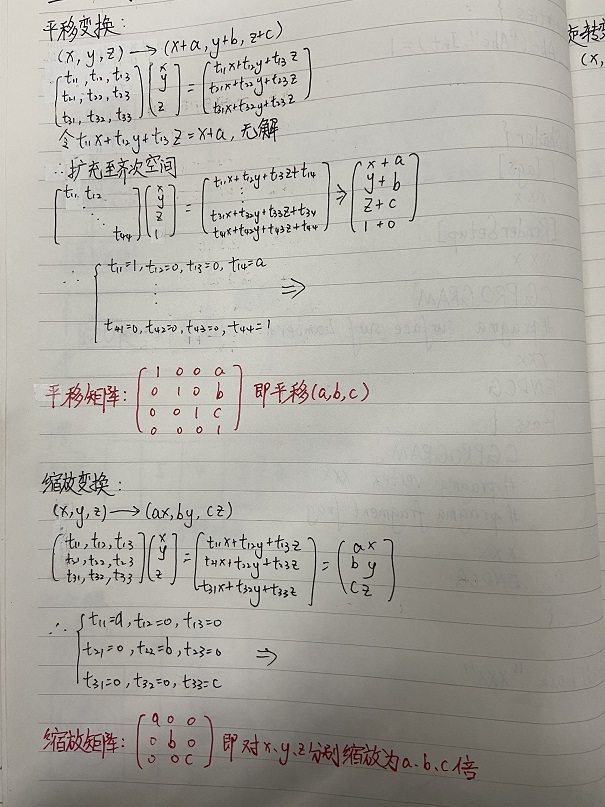 平移变换:
(x, y, z) → (x+a, y+b, z+c)
(t11, t12, t13; t21, t22, t23; t31, t32, t33)(x; y; z) = (t11x+t12y+t13z; t21x+t22y+t23z; t31x+t32y+t33z)
令t11x+t12y+t13z=x+a, 无解
∴扩充至齐次空间
(t11 t12 ⋱ t44)(x; y; z; 1) = (t11x+t12y+t13z+t14; ⋮ t31x+t32y+t33z+t34; t41x+t42y+t43z+t44) ⇒ (x+a; y+b; z+c; 1+0)
∴ { t11=1, t12=0, t13=0, t14=a
⋮ ⇒
t41=0, t42=0, t43=0, t44=1
平移矩阵: (1 0 0 a; 0 1 0 b; 0 0 1 c; 0 0 0 1) 即平移(a,b,c)
缩放变换:
(x,y,z) → (ax, by, cz)
(t11, t12, t13; t21, t22, t23; t31, t32, t33)(x; y; z) = (t11x+t12y+t13z; t21x+t22y+t23z; t31x+t32y+t33z) = (ax; by; cz)
∴ { t11=a, t12=0, t13=0
t21=0, t22=b, t23=0 ⇒
t31=0, t32=0, t33=c
缩放矩阵: (a 0 0; 0 b 0; 0 0 c) 即对x、y、z分别缩放为a、b、c倍
旋转变
(x,